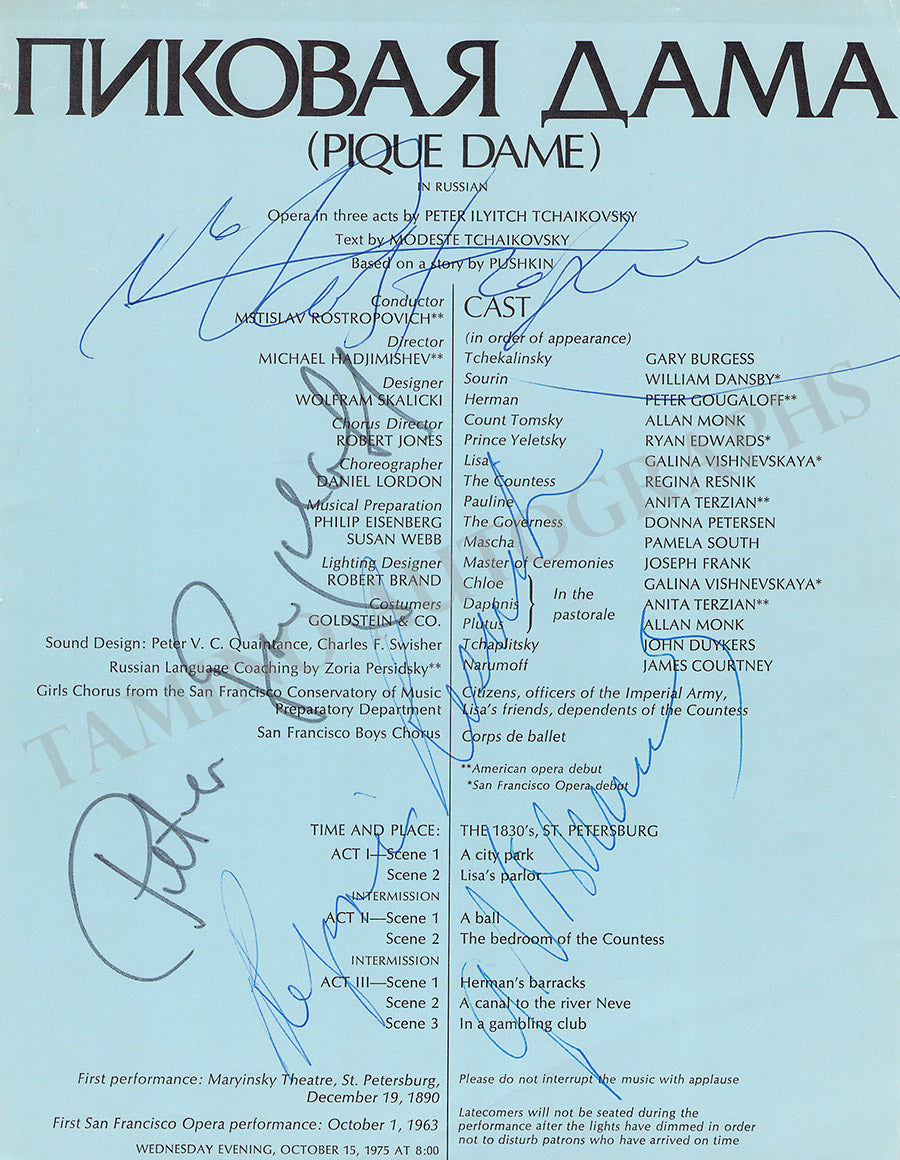 ПИКОВАЯ ДАМА
(PIQUE DAME)
IN RUSSIAN
Opera in three acts by PETER ILYITCH TCHAIKOVSKY
Text by MODESTE TCHAIKOVSKY
Based on a story by PUSHKIN
Conductor
MSTISLAV ROSTROPOVICH**
Director
MICHAEL HADJIMISHEV**
Designer
WOLFRAM SKALICKI
Chorus Director
ROBERT JONES
Choreographer
DANIEL LORDON
Musical Preparation
PHILIP EISENBERG
SUSAN WEBB
Lighting Designer
ROBERT BRAND
Costumers
GOLDSTEIN & CO.
Sound Design: Peter V. C. Quaintance, Charles F. Swisher
Russian Language Coaching by Zoria Persidsky**
Girls Chorus from the San Francisco Conservatory of Music
Preparatory Department
San Francisco Boys Chorus
CAST
(in order of appearance)
Tchekalinsky GARY BURGESS
Sourin WILLIAM DANSBY*
Herman PETER GOUGALOFF**
Count Tomsky ALLAN MONK
Prince Yeletsky RYAN EDWARDS*
Lisa GALINA VISHNEVSKAYA*
The Countess REGINA RESNIK
Pauline ANITA TERZIAN**
The Governess DONNA PETERSEN
Mascha PAMELA SOUTH
Master of Ceremonies JOSEPH FRANK
Chloe GALINA VISHNEVSKAYA*
Daphnis ANITA TERZIAN**
Plutus ALLAN MONK
In the
pastorale
Tchaplitsky JOHN DUYKERS
Narumoff JAMES COURTNEY
Citizens, officers of the Imperial Army,
Lisa's friends, dependents of the Countess
Corps de ballet
**American opera debut
*San Francisco Opera debut
TIME AND PLACE: THE 1830's, ST. PETERSBURG
ACT I—Scene 1 A city park
Scene 2 Lisa's parlor
INTERMISSION
ACT II—Scene 1 A ball
Scene 2 The bedroom of the Countess
INTERMISSION
ACT III—Scene 1 Herman's barracks
Scene 2 A canal to the river Neve
Scene 3 In a gambling club
First performance: Maryinsky Theatre, St. Petersburg,
December 19, 1890
First San Francisco Opera performance: October 1, 1963
WEDNESDAY EVENING, OCTOBER 15, 1975 AT 8:00
Please do not interrupt the music with applause
Latecomers will not be seated during the
performance after the lights have dimmed in order
not to disturb patrons who have arrived on time
Peter
Regina Resnik
TAMINO AUTOGRAPHS